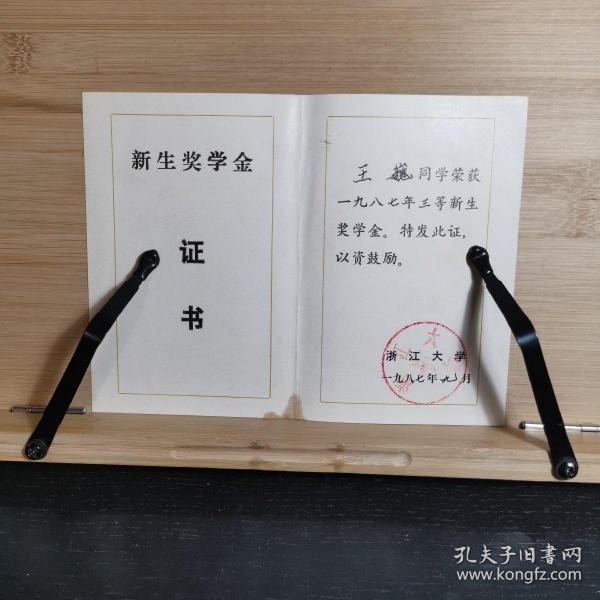 新生奖学金
证
书
王 巍同学荣获
一九八七年三等新生
奖学金。特发此证，
以资鼓励。
浙江大学
一九八七年九月
孔夫子旧书网
www.kongfz.com